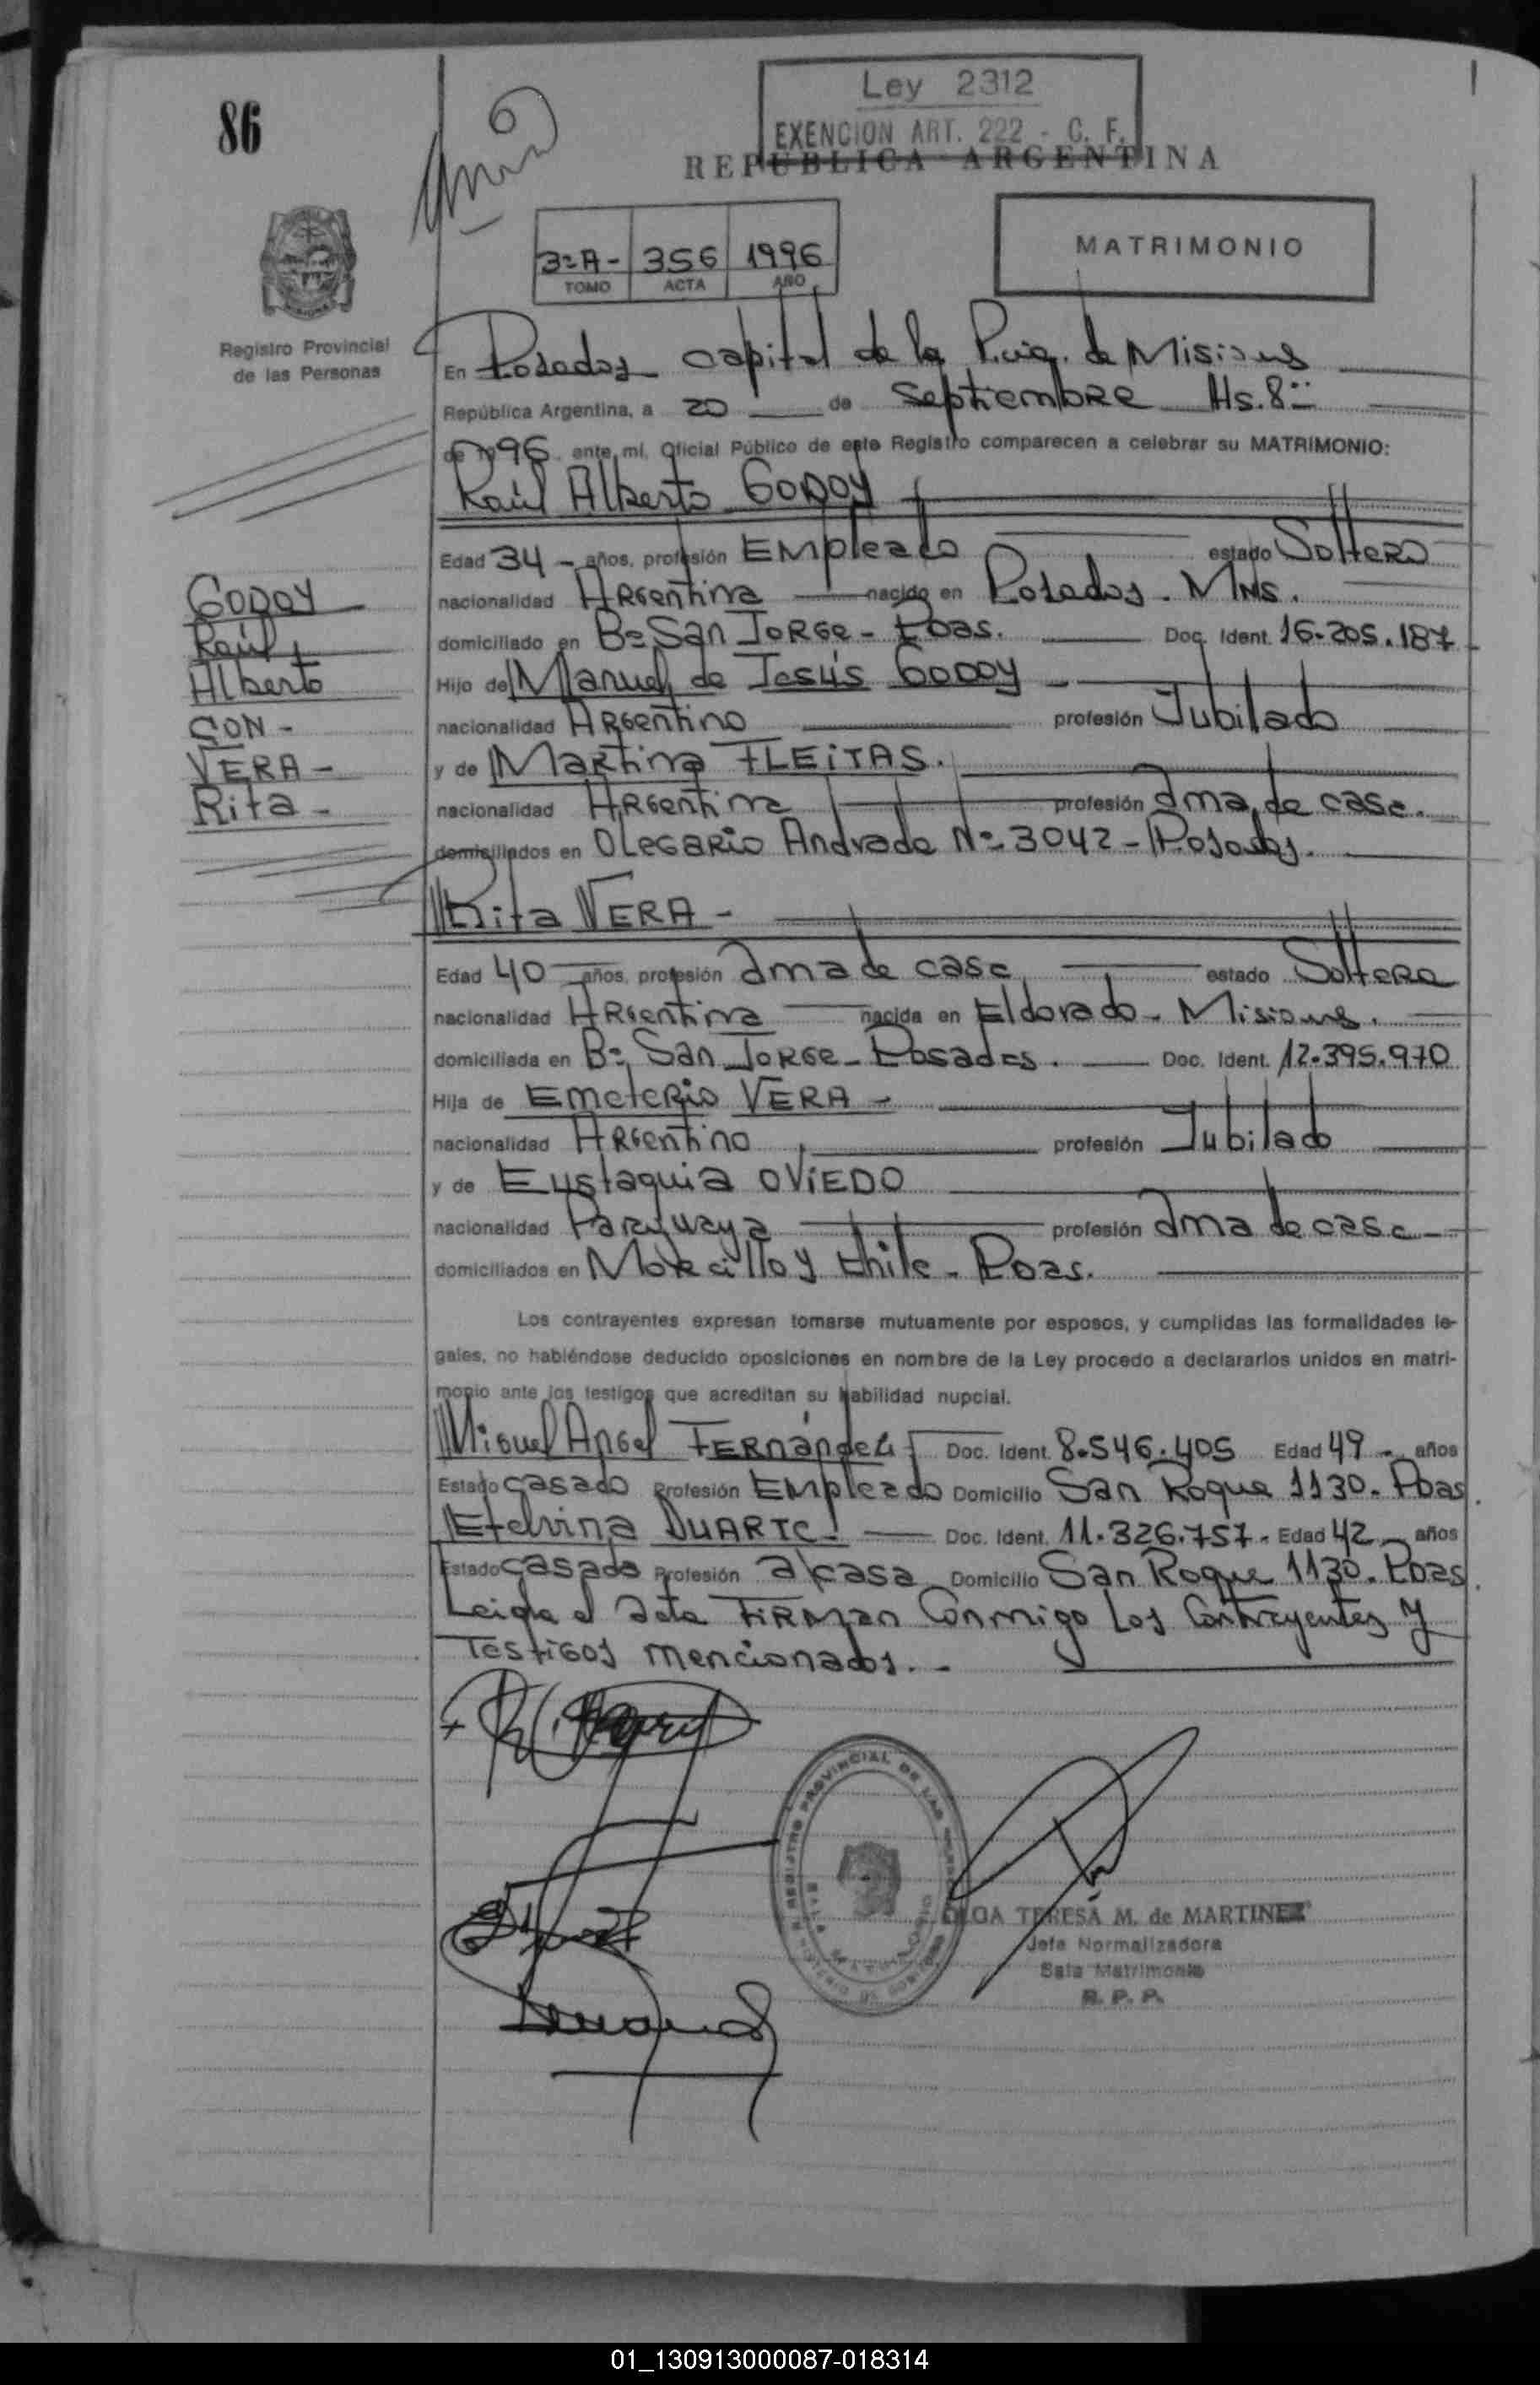 86
Ley 2312
EXENCION ART. 222 - C. F.
REPUBLICA ARGENTINA
3º A - 356 1996
TOMO ACTA AÑO
MATRIMONIO
Registro Provincial
de las Personas
En Posadas capital de la Pvia. de Misiones
República Argentina, a 20 de septiembre Hs. 8
de 1996 ante mí, Oficial Público de este Registro comparecen a celebrar su MATRIMONIO:
Raúl Alberto GODOY
Edad 34 - años, profesión Empleado estado Soltero
nacionalidad Argentina nacido en Posadas. Mns.
domiciliado en Bº San Jorge - Pdas. Doc. Ident. 16.205.187
Hijo de Manuel de Jesús GODOY
nacionalidad Argentino profesión Jubilado
y de Martina FLEITAS.
nacionalidad Argentina profesión ama de casa.
domiciliados en Olegario Andrade Nº 3042 - Posadas.
GODOY
Raúl
Alberto
CON -
VERA -
Rita -
Rita VERA -
Edad 40 años, profesión ama de casa estado Soltera
nacionalidad Argentina nacida en Eldorado - Misiones.
domiciliada en Bº San Jorge - Posadas. Doc. Ident. 12.395.970
Hija de Emeterio VERA -
nacionalidad Argentino profesión Jubilado
y de Eustaquia OVIEDO
nacionalidad Paraguaya profesión ama de casa -
domiciliados en Morcillo y Chile - Pdas.
Los contrayentes expresan tomarse mutuamente por esposos, y cumplidas las formalidades le-
gales, no habiéndose deducido oposiciones en nombre de la Ley procedo a declararlos unidos en matri-
monio ante los testigos que acreditan su habilidad nupcial.
Miguel Angel FERNández Doc. Ident. 8.546.405 Edad 49 - años
Estado casado Profesión Empleado Domicilio San Roque 1130. Pdas.
Etelvina DUARTE - Doc. Ident. 11.326.757. Edad 42 años
Estado casada Profesión a/casa Domicilio San Roque 1130. Pdas.
Leida el acta FIRMAN conmigo los contrayentes y
Testigos mencionados. -
REGISTRO PROVINCIAL DE LAS
OLGA TERESA M. de MARTINEZ
Jefa Normalizadora
Sala Matrimonio
R. P. P.
01_130913000087-018314